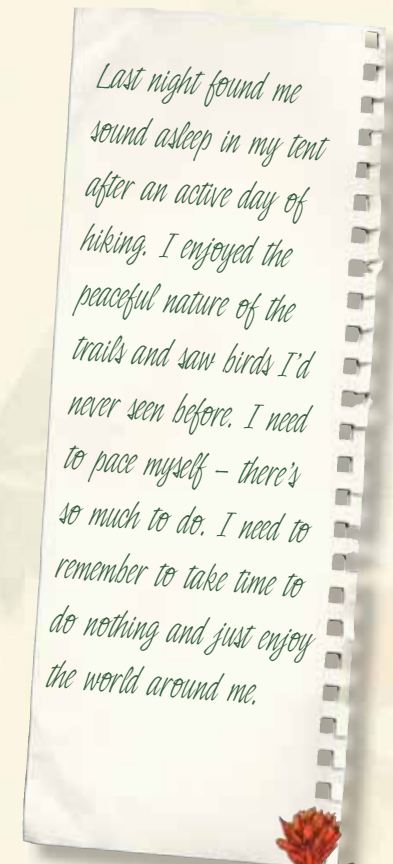 Last night found me
sound asleep in my tent
after an active day of
hiking. I enjoyed the
peaceful nature of the
trails and saw birds I'd
never seen before. I need
to pace myself – there's
so much to do. I need to
remember to take time to
do nothing and just enjoy
the world around me.